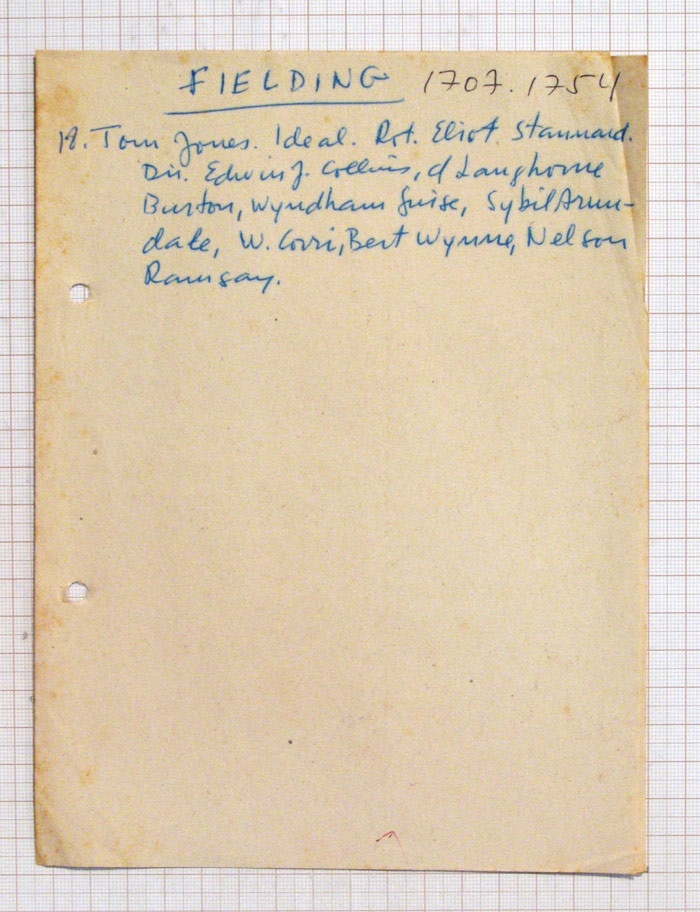 FIELDING 1707.1754
18. Tom Jones. Ideal. Rot. Eliot Stannard.
Dir. Edwin J. Collins, d Langhorne
Burton, Wyndham Guise, Sybil Arun-
dale, W. Corri, Bert Wynne, Nelson
Ramsay.